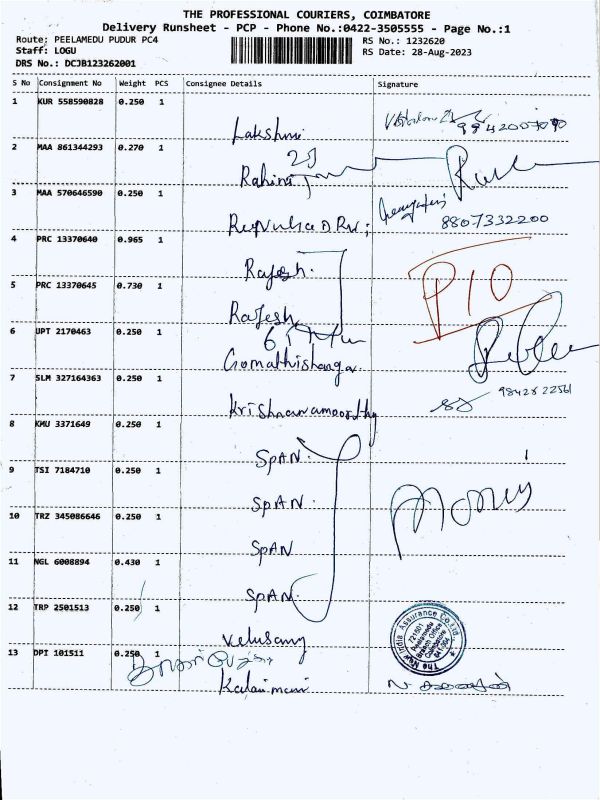 THE PROFESSIONAL COURIERS, COIMBATORE
Delivery Runsheet - PCP - Phone No.:0422-3505555 - Page No.:1
Route: PEELAMEDU PUDUR PC4 RS No.: 1232620
Staff: LOGU RS Date: 28-Aug-2023
DRS No.: DCJB123262001
S No Consignment No Weight PCS Consignee Details Signature
1 KUR 558590828 0.250 1
Lakshmi
2 MAA 861344293 0.270 1
Rahini
3 MAA 570646590 0.250 1
8807332200
4 PRC 13370640 0.965 1
Rajesh.
P10
5 PRC 13370645 0.730 1
Rajesh
6 UPT 2170463 0.250 1
Gomathishanga
7 SLM 327164363 0.250 1
Krishnawamoorthy
8 KMU 3371649 0.250 1
SPAN.
9 TSI 7184710 0.250 1
SPAN.
10 TRZ 345086646 0.250 1
SPAN
11 NGL 6008894 0.430 1
SPAN.
12 TRP 2501513 0.250 1
Velusamy
The New India Assurance Co.Ltd.
721501
Peelamedu
Branch Office
Coimbatore
641 004
13 DPI 101511 0.250 1
Kalaimani